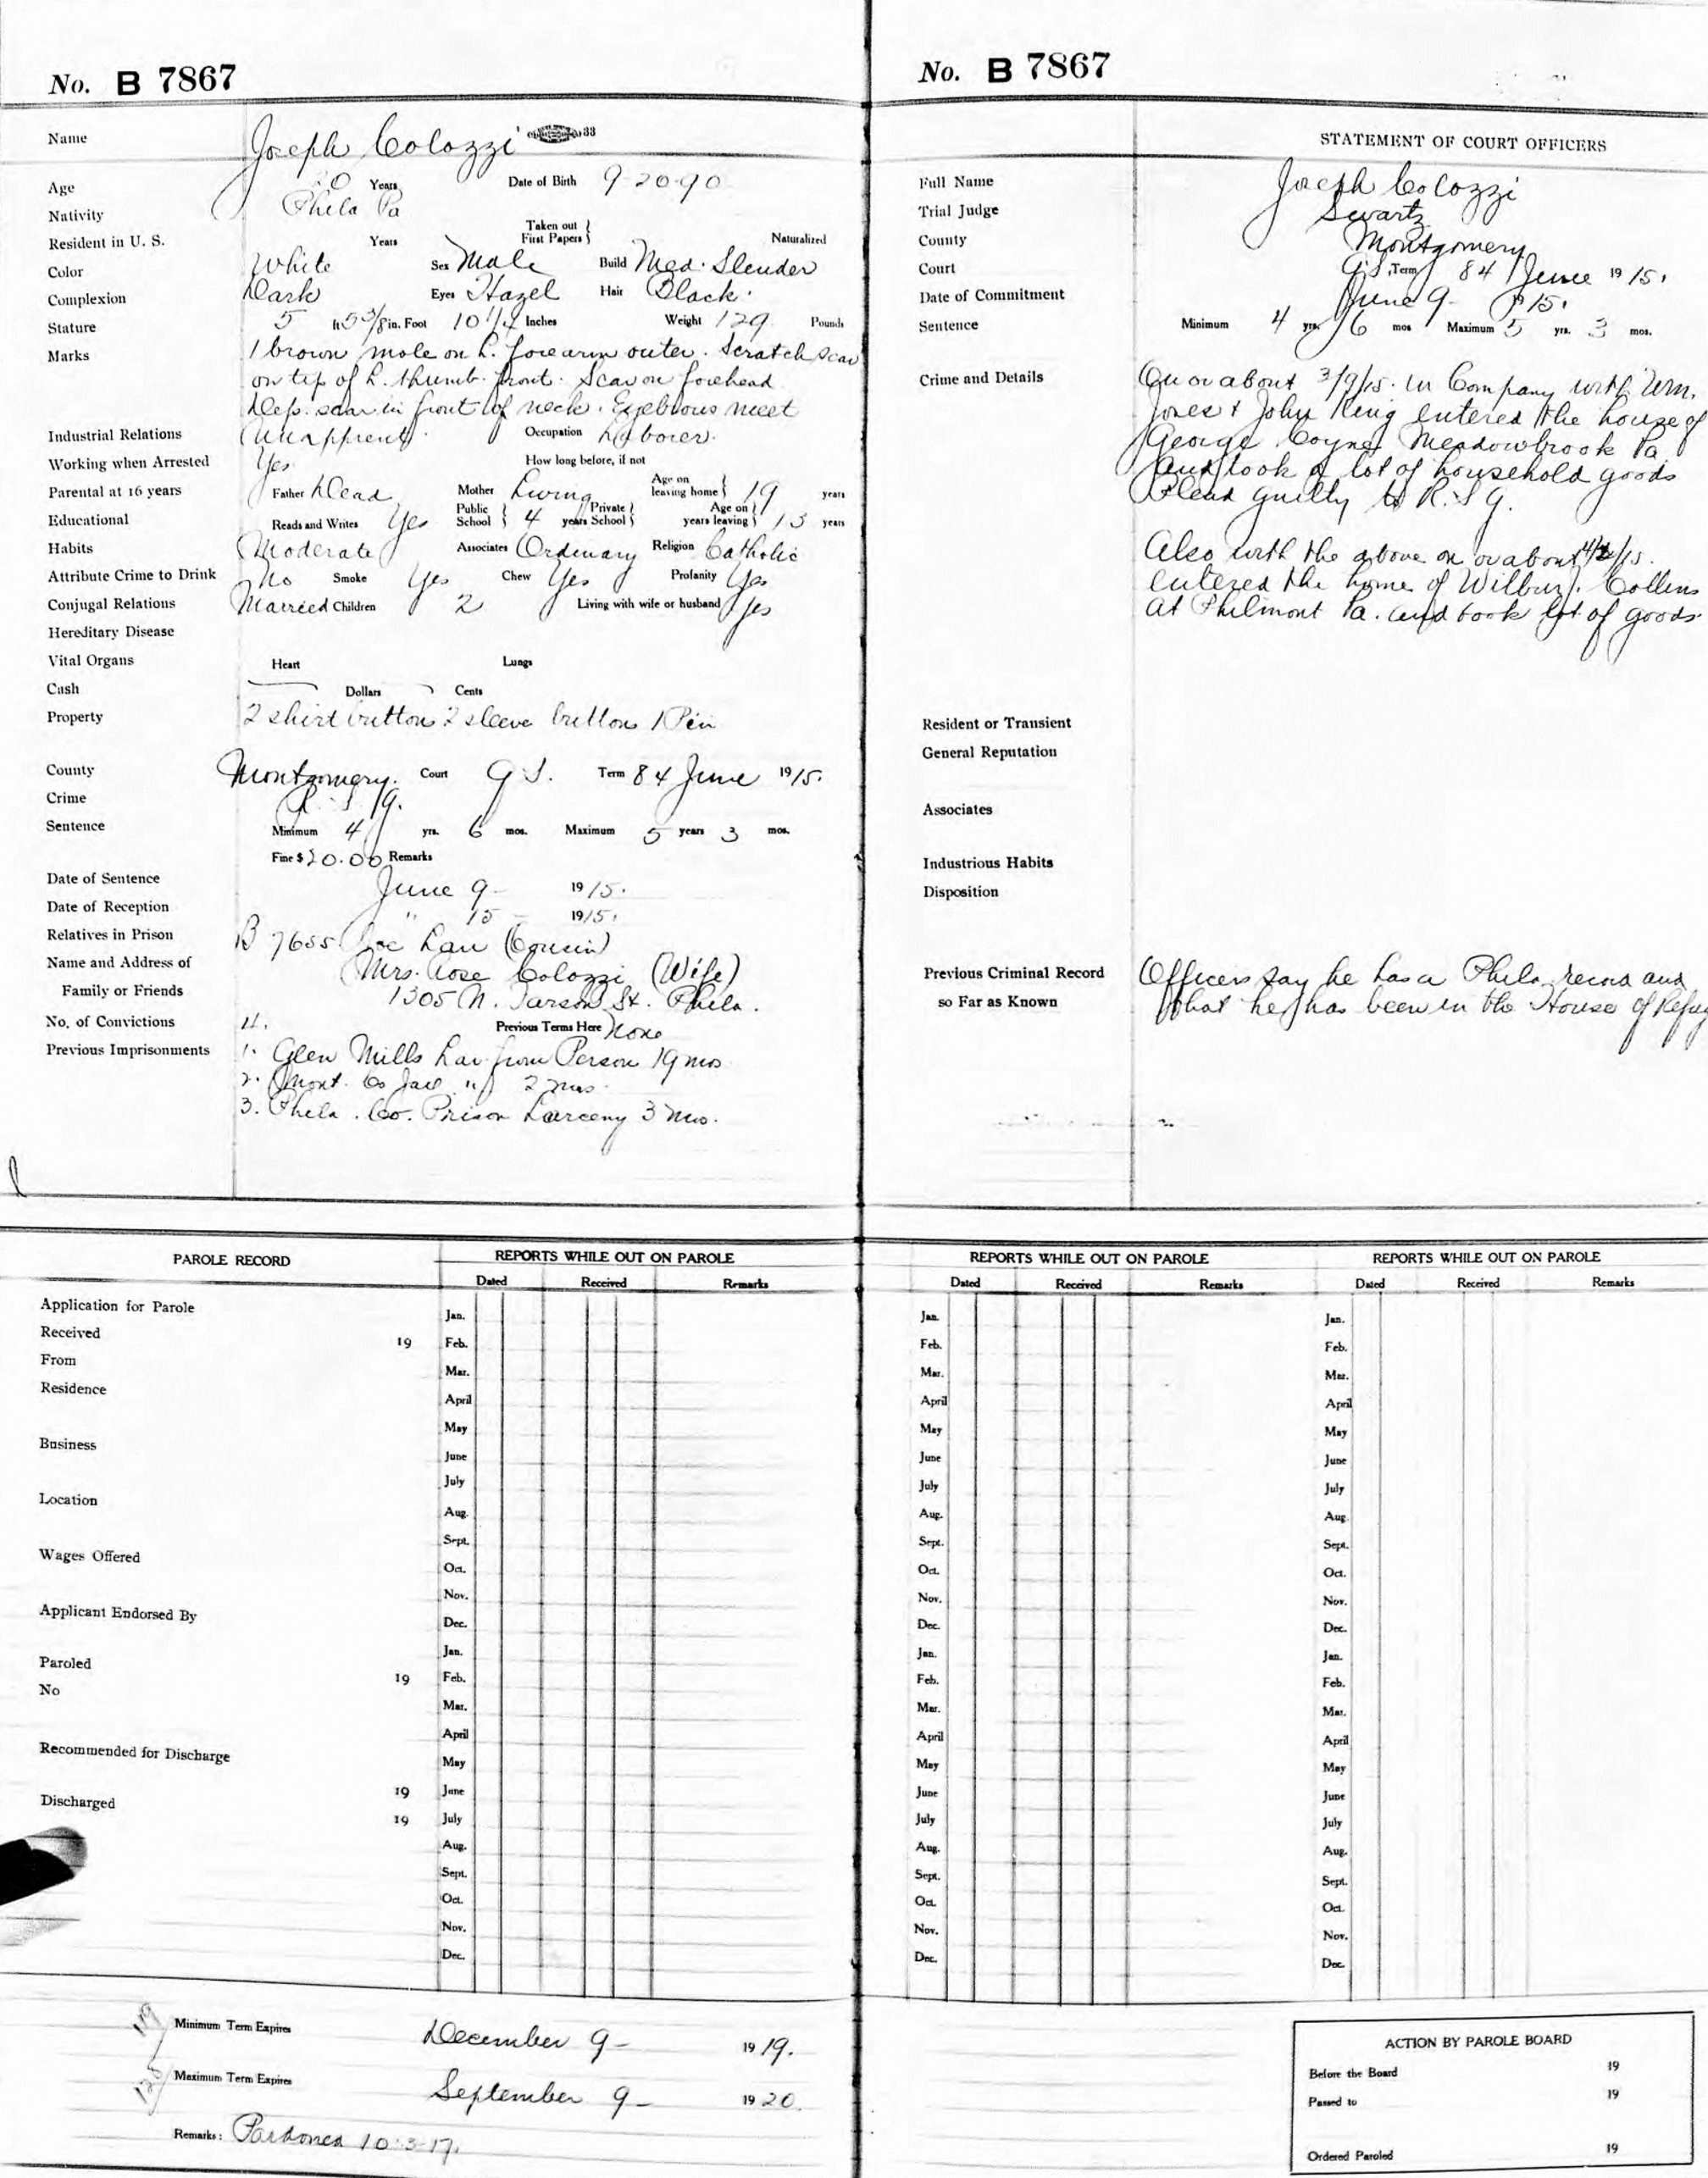 No. B 7867
Name Joseph Colozzi
Age 20 Years Date of Birth 9-20-90
Nativity Phila Pa
Resident in U. S. Years Taken out First Papers Naturalized
Color White Sex Male Build Med. Slender
Complexion Dark Eyes Hazel Hair Black.
Stature 5 ft 5 3/8 in. Foot 10 1/4 Inches Weight 129 Pounds
Marks 1 brown mole on L. forearm outer. Scratch scar
on tip of L. thumb. front. Scar on forehead
Dep. scar in front of neck. Eyebrows meet
Industrial Relations Unapprent. Occupation Laborer.
Working when Arrested Yes How long before, if not
Parental at 16 years Father Dead Mother Living Age on leaving home 19 years
Educational Reads and Writes Yes Public School 4 years Private School Age on years leaving 13 years
Habits Moderate Associates Ordinary Religion Catholic
Attribute Crime to Drink No Smoke Yes Chew Yes Profanity Yes
Conjugal Relations Married Children 2 Living with wife or husband Yes
Hereditary Disease
Vital Organs Heart Lungs
Cash Dollars Cents
Property 2 shirt buttons 2 sleeve buttons 1 Pin
County Montgomery. Court Q.S. Term 84 June 1915.
Crime R. S. G.
Sentence Minimum 4 yrs. 6 mos. Maximum 5 years 3 mos.
Fine $ 20.00 Remarks
Date of Sentence June 9- 1915.
Date of Reception " 15 - 1915.
Relatives in Prison B 7655 Joe Lau (Cousin)
Name and Address of Mrs. Rose Colozzi (Wife)
Family or Friends 1305 N. St. Phila.
No. of Convictions 4. Previous Terms Here None
Previous Imprisonments 1. Glen Mills Lar. from Person 19 mos
2. Mont. Co Jail " 2 mos.
3. Phila. Co. Prison Larceny 3 mos.
PAROLE RECORD
REPORTS WHILE OUT ON PAROLE
Dated Received Remarks
Application for Parole
Received 19
From
Residence
Business
Location
Wages Offered
Applicant Endorsed By
Paroled 19
No
Recommended for Discharge 19
Discharged 19
Jan.
Feb.
Mar.
April
May
June
July
Aug.
Sept.
Oct.
Nov.
Dec.
Jan.
Feb.
Mar.
April
May
June
July
Aug.
Sept.
Oct.
Nov.
Dec.
Minimum Term Expires December 9- 1919.
Maximum Term Expires September 9- 1920.
Remarks: Pardoned 10-3-17.
No. B 7867
STATEMENT OF COURT OFFICERS
Full Name Joseph Colozzi
Trial Judge Swartz
County Montgomery
Court Q.S. Term 84 June 1915.
Date of Commitment June 9- 1915.
Sentence Minimum 4 yrs. 6 mos Maximum 5 yrs. 3 mos.
Crime and Details On or about 3/9/15. in Company with Wm.
Jones & John King entered the house of
George Coyne, Meadowbrook Pa
and took a lot of household goods
Plead guilty to R.S G.
Also with the above on or about
entered the home of Wilbur J. Collins
at Philmont Pa. and took lot of goods.
Resident or Transient
General Reputation
Associates
Industrious Habits
Disposition
Previous Criminal Record Officers say he has a Phila. record and
so Far as Known that he has been in the House of Refug
REPORTS WHILE OUT ON PAROLE
Dated Received Remarks
Jan.
Feb.
Mar.
April
May
June
July
Aug.
Sept.
Oct.
Nov.
Dec.
Jan.
Feb.
Mar.
April
May
June
July
Aug.
Sept.
Oct.
Nov.
Dec.
REPORTS WHILE OUT ON PAROLE
Dated Received Remarks
Jan.
Feb.
Mar.
April
May
June
July
Aug.
Sept.
Oct.
Nov.
Dec.
Jan.
Feb.
Mar.
April
May
June
July
Aug.
Sept.
Oct.
Nov.
Dec.
ACTION BY PAROLE BOARD
Before the Board 19
Passed to 19
Ordered Paroled 19